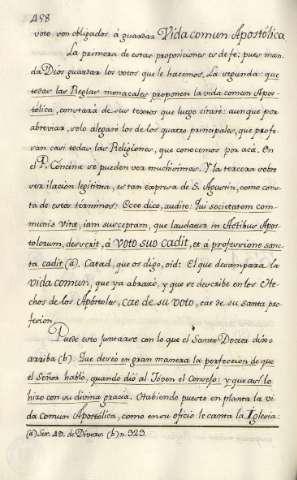 458
voto, son obligados à guardar Vida comun Apostólica
La primera de estas proposiciones es de fe; pues man-
da Dios guardar los votos que le hacemos. La segunda: que
todas las Reglas monacales proponen la vida comun Apos-
tólica, constarà de sus textos que luego citaré: aunque por
abreviar, solo alegaré los de los quatro principales, que profe-
san casi todas las Religiones, que conocemos por acà. En
el P. Concina se pueden ver muchisimas. Y la tercera sobre
ser ilacion legitima, es tan expresa de S. Agustin, como cons-
ta de estos terminos: Ecce dico, audite: Qui societatem com-
munis vitæ, iam susceptam, quæ laudatur in Actibus Apos-
tolorum, deserit, à voto suo cadit, et à professione sanc-
ta cadit (a). Catad, que os digo, oid: El que desampara la
vida comun, que ya abrazó, y que se describe en los He-
chos de los Apóstoles, cae de su voto, cae de su santa pro-
fesion.
Puede esto juntarse con lo que el Santo Doctor dixo
arriba (b): Que deseó en gran manera la perfeccion de que
el Señor habló, quando dió al Joven el Consejo: y que asi lo
hizo con su divina gracia. Habiendo puesto en planta la vi-
da comun Apostólica, como en su oficio le canta la Iglesia:
(a) Ser. 49. de Divers. (b) n. 323.